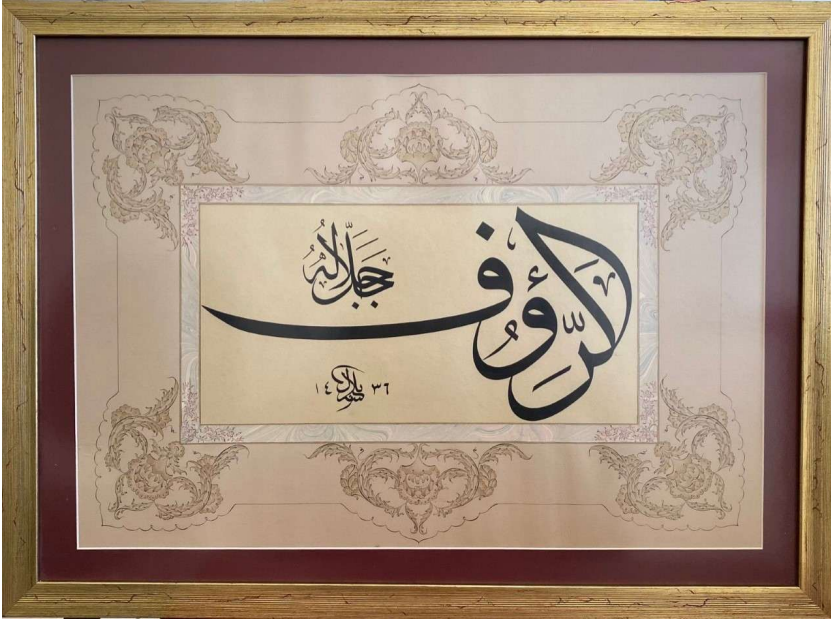 الرَّؤُف
جَلَّ جَلَالُهُ
١٤٣٦